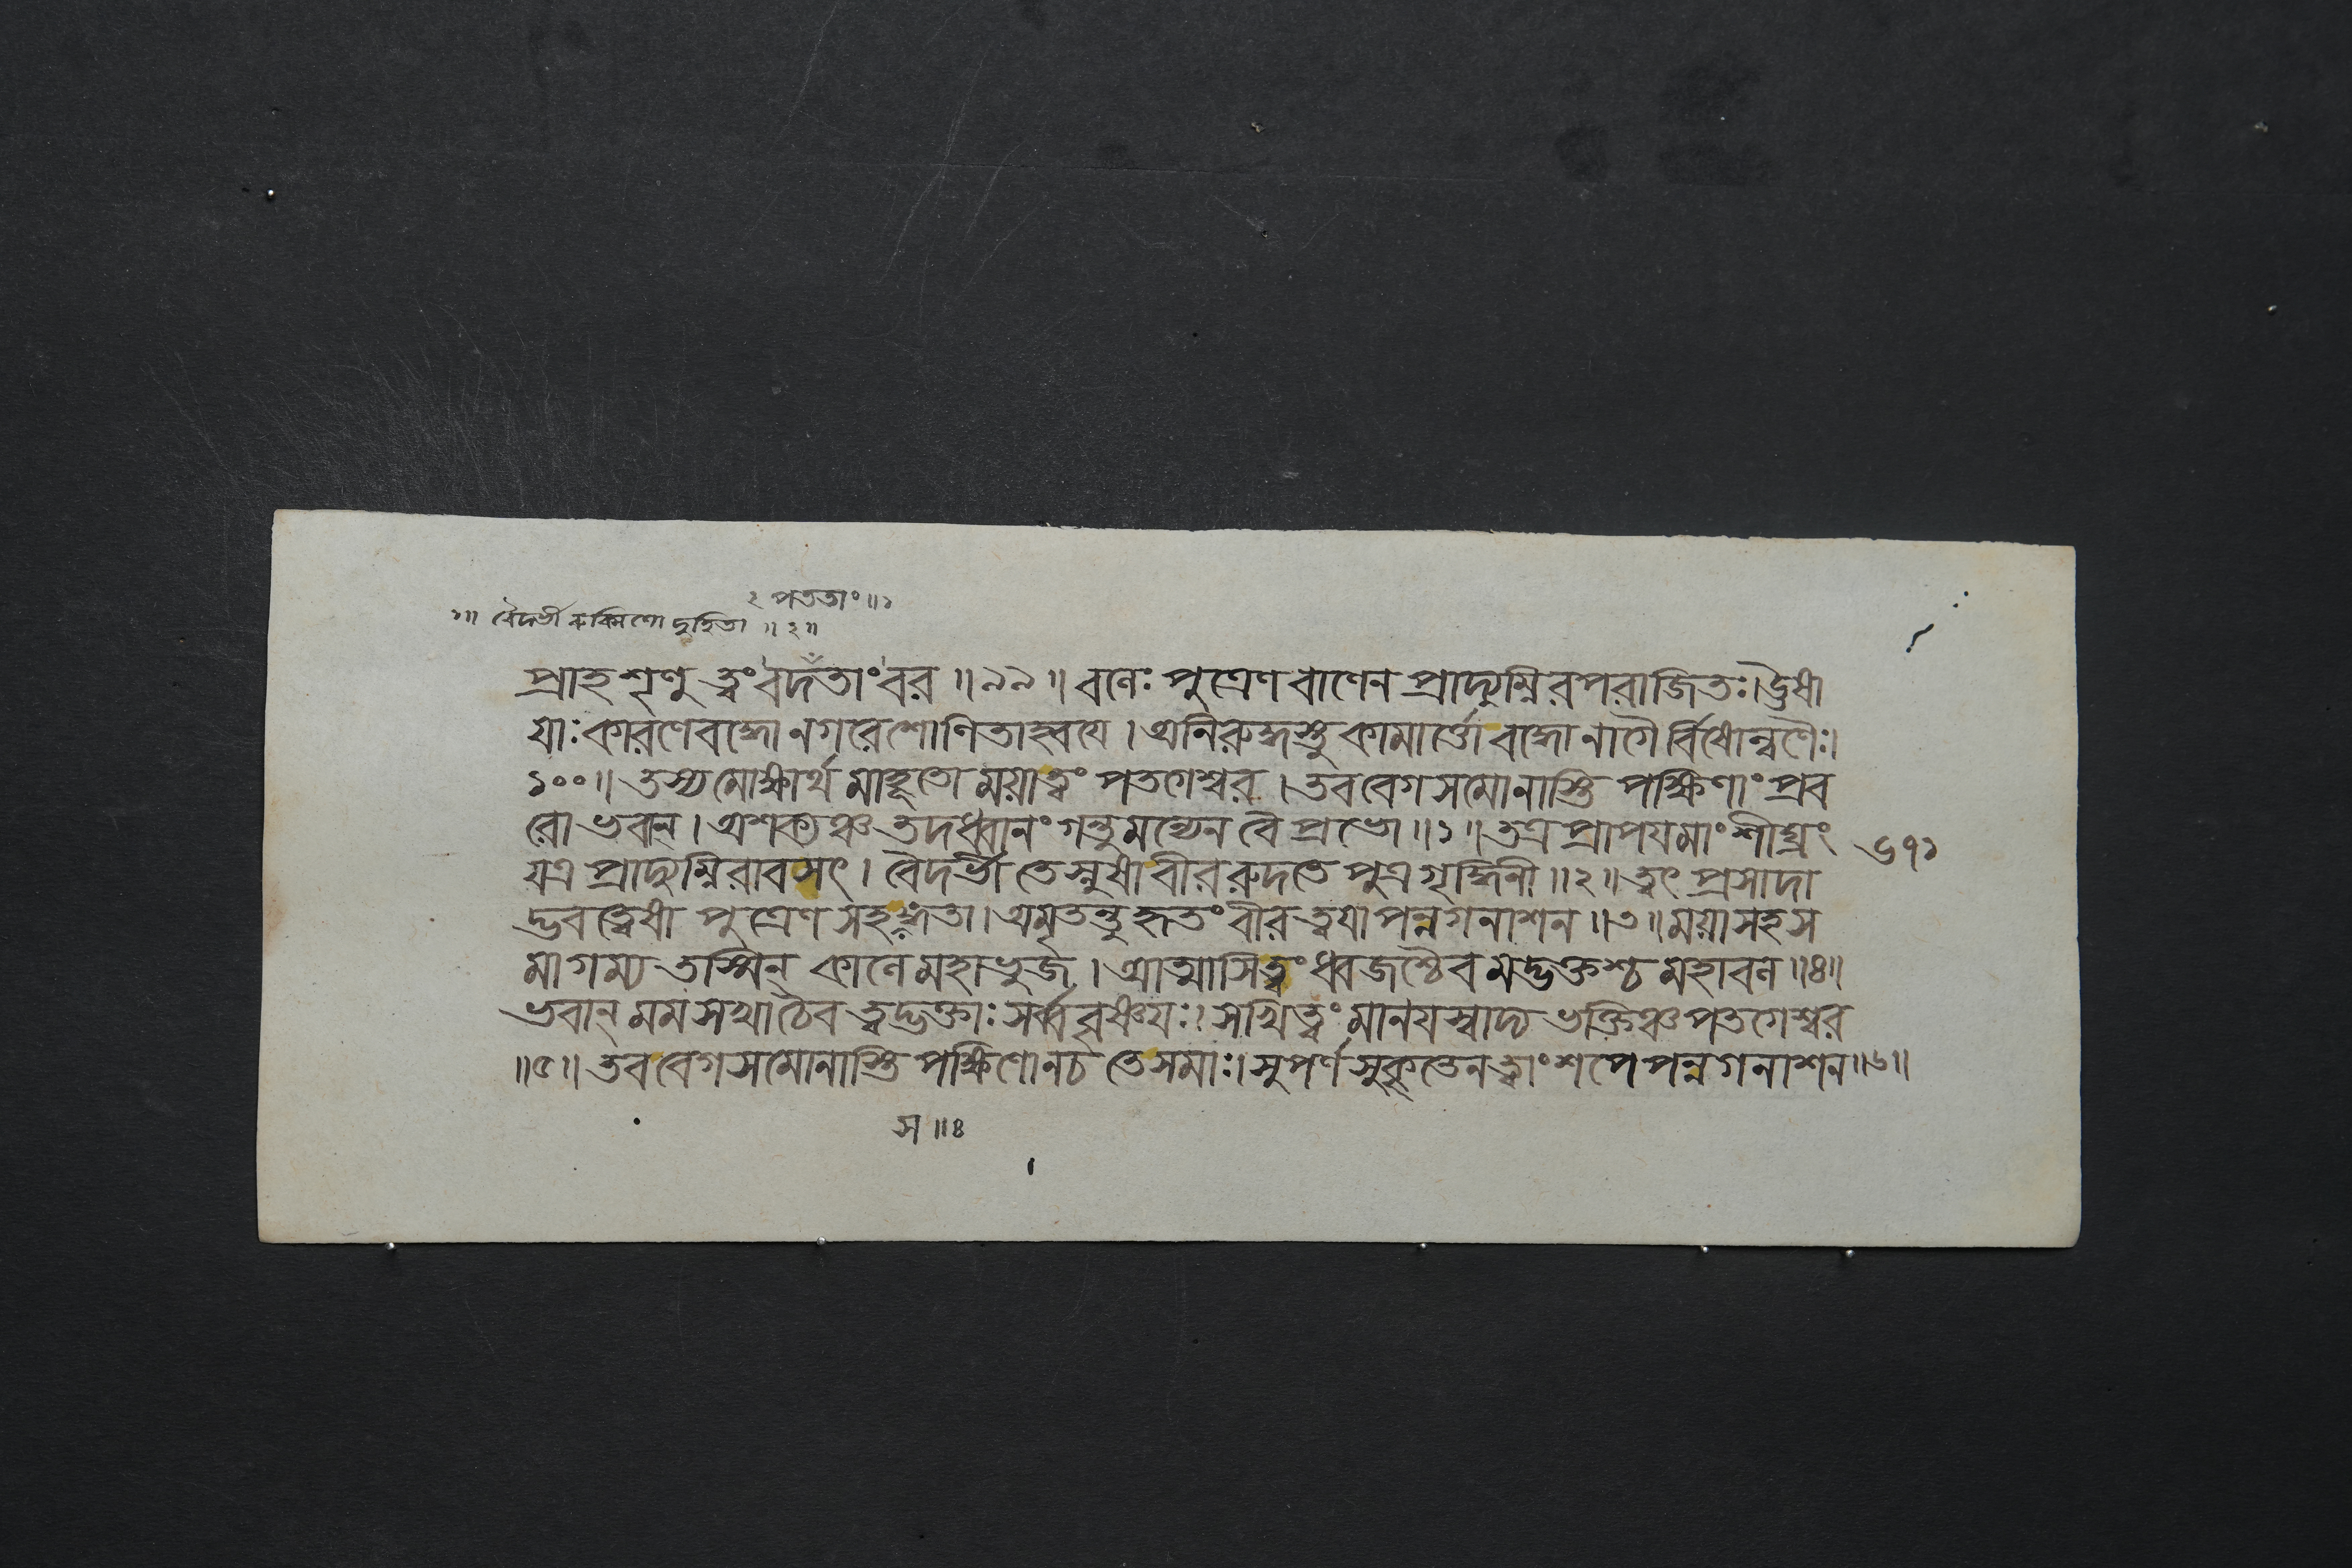 ২ পততাং ॥ ১
১॥ বৈদর্ভী রুক্মিণো দুহিতা ॥ ২॥
প্রাহ শৃণু ত্বং বদতাং বর ॥ ৯৯ ॥ বলেঃ পুত্রেণ বাণেন প্রাদ্যুম্নিরপরাজিতঃ। উষা
যাঃ কারণে বদ্ধো নগরে শোণিতাহ্বয়ে । অনিরুদ্ধস্তু কামার্ত্তো বদ্ধো নাগৈর্বিষোল্বণৈঃ।
১০০॥ তস্য মোক্ষার্থমাহূতো ময়া ত্বং পতগেশ্বর । তব বেগসমো নাস্তি পক্ষিণাং প্রব
রো ভবান্ । অশক্যঞ্চ তদধ্বানং গন্তুমন্যেন বৈ প্রভো ॥ ১ ॥ তত্র প্রাপয় মাং শীঘ্রং
৬৭১
যত্র প্রাদ্যুম্নিরাবসৎ । বৈদর্ভী তে স্নুষা বীর রুদতে পুত্রগৃদ্ধিনী ॥ ২ ॥ ত্বৎ প্রসাদা
দ্ভবত্বেষা পুত্রেণ সহ সঙ্গতা। অমৃতন্তু হৃতং বীর ত্বয়া পন্নগনাশন ॥ ৩ ॥ ময়া সহ স
মাগম্য তস্মিন্ কালে মহাভুজ । আত্মাসি ত্বং ধ্বজশ্চৈব মদ্ভক্তশ্চ মহাবল ॥ ৪॥
ভবান্ মম সখা চৈব ত্বদ্ভক্তাঃ সর্ব্ববৃষ্ণয়ঃ। সখিত্বং মানয়স্বাদ্য ভক্তিঞ্চ পতগেশ্বর
॥ ৫॥ তব বেগসমো নাস্তি পক্ষিণো ন চ তে সমাঃ। সুপর্ণ সুকৃতেন ত্বাং শপে পন্নগনাশন ॥ ৬॥
স ॥ ৪